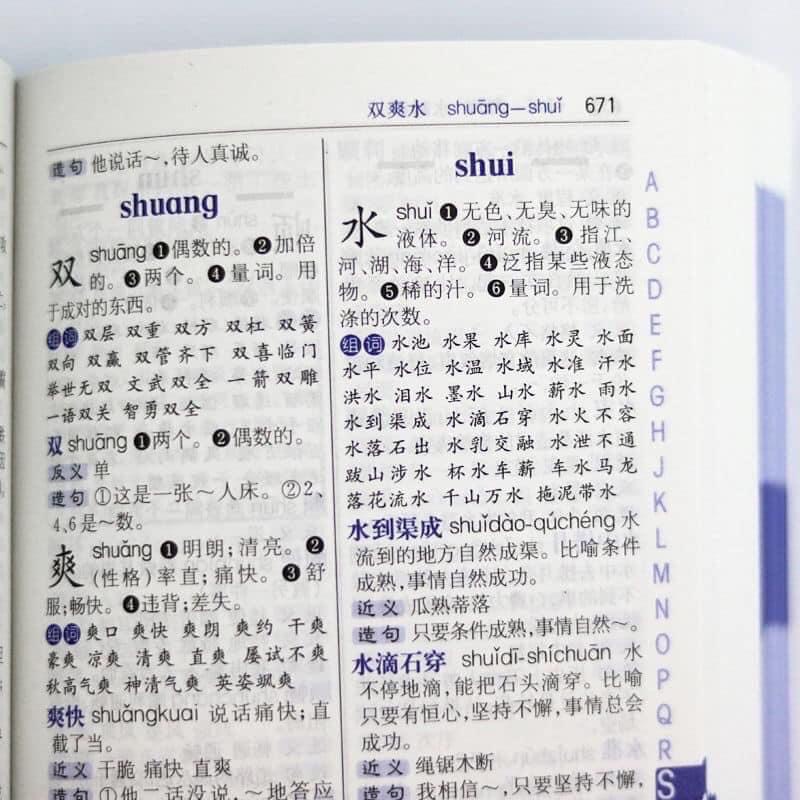 双爽水 shuāng—shuǐ 671
造句 他说话～,待人真诚。
shuang
双 shuāng ❶偶数的。❷加倍
的。❸两个。❹量词。用
于成对的东西。
组词 双层 双重 双方 双杠 双簧
双向 双赢 双管齐下 双喜临门
举世无双 文武双全 一箭双雕
一语双关 智勇双全
双 shuāng ❶两个。❷偶数的。
反义 单
造句 ①这是一张～人床。②2、
4、6是～数。
爽 shuǎng ❶明朗;清亮。❷
(性格)率直;痛快。❸舒
服;畅快。❹违背;差失。
组词 爽口 爽快 爽朗 爽约 干爽
豪爽 凉爽 清爽 直爽 屡试不爽
秋高气爽 神清气爽 英姿飒爽
爽快 shuǎngkuai 说话痛快;直
截了当。
近义 干脆 痛快 直爽
造句 ①他二话没说,～地答应
shui
水 shuǐ ❶无色、无臭、无味的
液体。❷河流。❸指江、
河、湖、海、洋。❹泛指某些液态
物。❺稀的汁。❻量词。用于洗
涤的次数。
组词 水池 水果 水库 水灵 水面
水平 水位 水温 水域 水准 汗水
洪水 泪水 墨水 山水 薪水 雨水
水到渠成 水滴石穿 水火不容
水落石出 水乳交融 水泄不通
跋山涉水 杯水车薪 车水马龙
落花流水 千山万水 拖泥带水
水到渠成 shuǐdào-qúchéng 水
流到的地方自然成渠。比喻条件
成熟,事情自然成功。
近义 瓜熟蒂落
造句 只要条件成熟,事情自然～。
水滴石穿 shuǐdī-shíchuān 水
不停地滴,能把石头滴穿。比喻
只要有恒心,坚持不懈,事情总会
成功。
近义 绳锯木断
造句 我相信～,只要坚持不懈,
A
B
C
D
E
F
G
H
J
K
L
M
N
O
P
Q
R
S